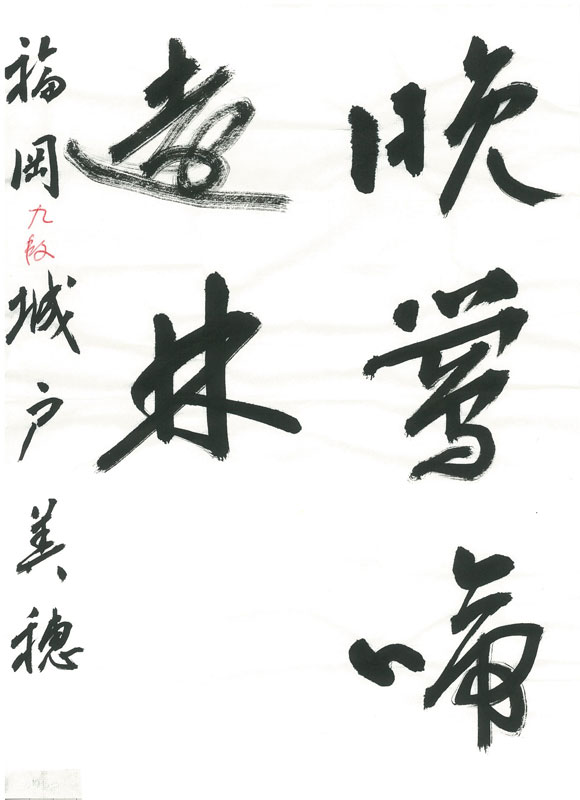 晩鶯啼
遠林
福岡 九段 城戸美穂